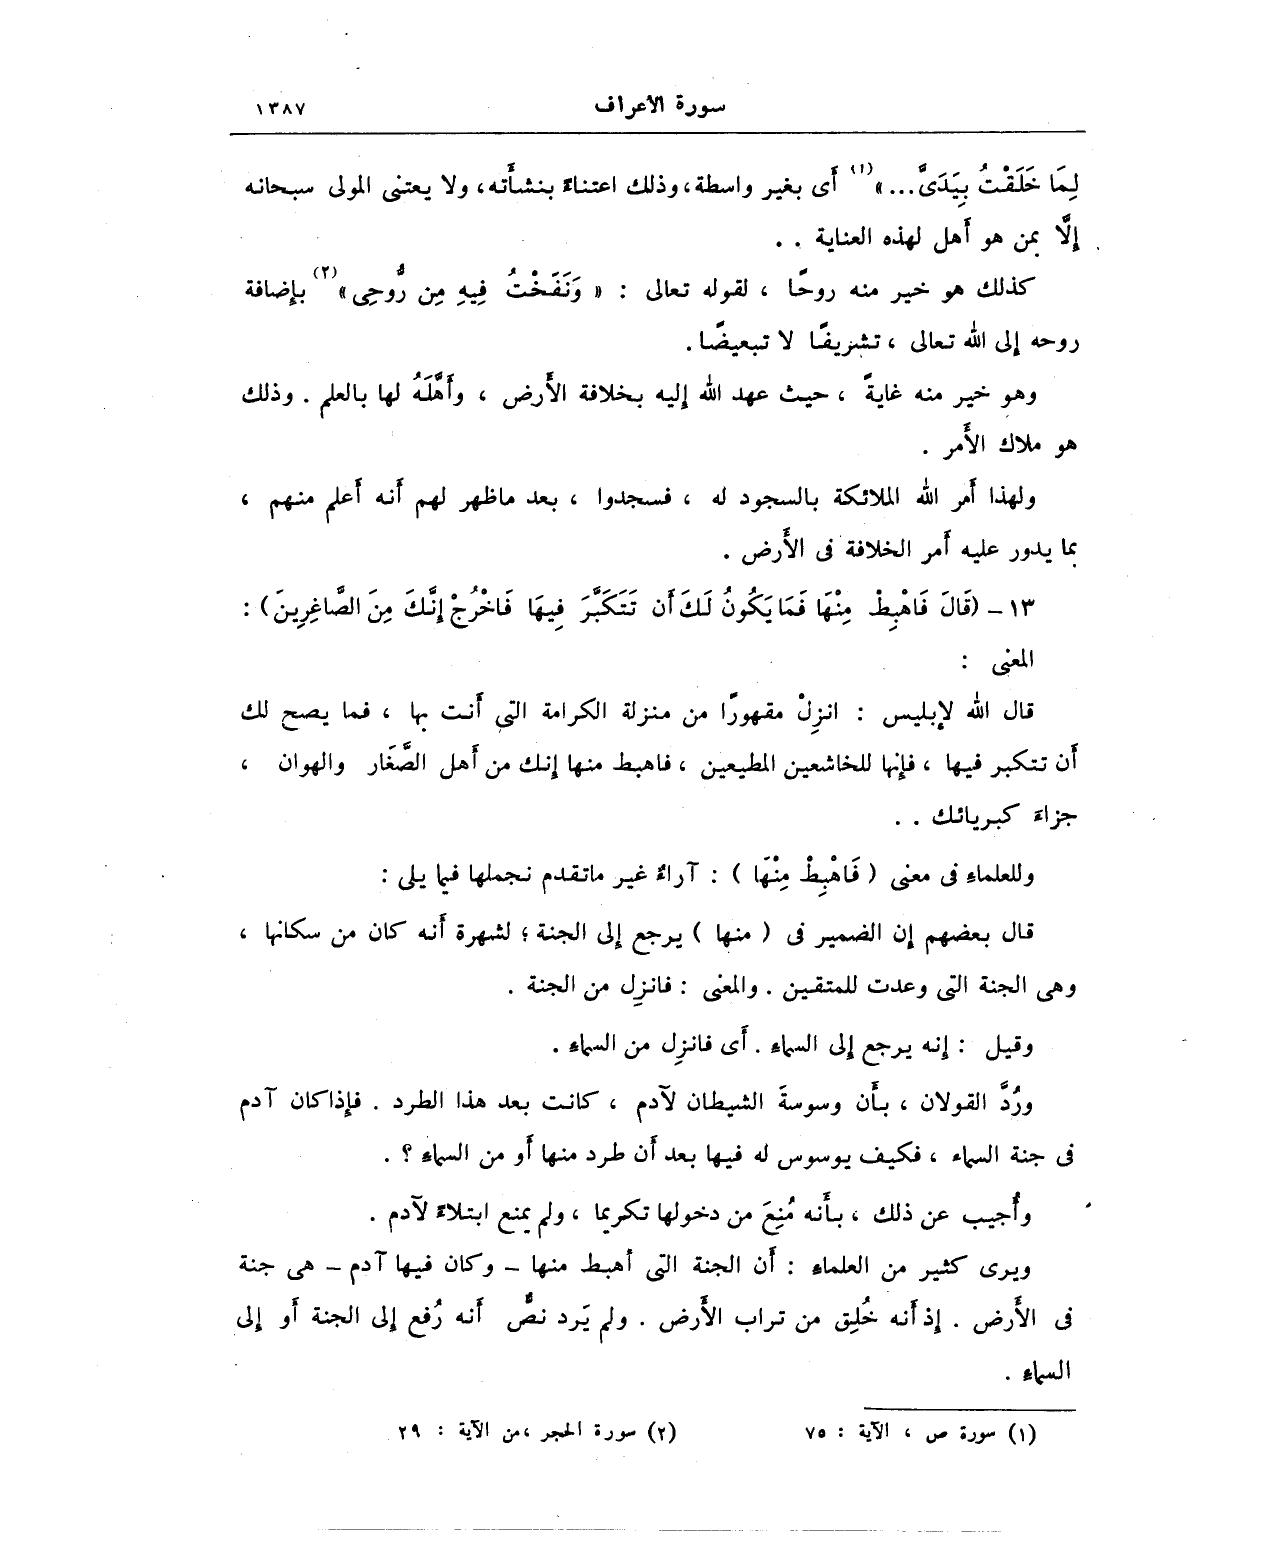 سورة الأعراف ١٣٨٧
لِمَا خَلَقْتُ بِيَدَىَّ...» (١) أَى بغير واسطة، وذلك اعتناءً بنشأَته، ولا يعتنى المولى سبحانه
إِلَّا بمن هو أَهل لهذه العناية . .
كذلك هو خير منه روحًا ، لقوله تعالى : « وَنَفَخْتُ فِيهِ مِن رُّوحِى» (٢) بإِضافة
روحه إِلى الله تعالى ، تشريفًا لا تبعيضًا.
وهو خير منه غايةً ، حيث عهد الله إِليه بخلافة الأَرض ، وأَهَّلَهُ لها بالعلم . وذلك
هو ملاك الأَمر .
ولهذا أَمر الله الملائكة بالسجود له ، فسجدوا ، بعد ماظهر لهم أَنه أَعلم منهم ،
بما يدور عليه أَمر الخلافة فى الأَرض .
١٣ – (قَالَ فَاهْبِطْ مِنْهَا فَمَا يَكُونُ لَكَ أَن تَتَكَبَّرَ فِيهَا فَاخْرُجْ إِنَّكَ مِنَ الصَّاغِرِينَ) :
المعنى :
قال الله لإِبليس : انزِلْ مقهورًا من منزلة الكرامة التى أَنت بها ، فما يصح لك
أَن تتكبر فيها ، فإِنها للخاشعين المطيعين ، فاهبط منها إِنك من أَهل الصَّغَار والهوان ،
جزاءَ كبريائك . .
وللعلماء فى معنى ( فَاهْبِطْ مِنْهَا ) : آراءٌ غير ماتقدم نجملها فيما يلى :
قال بعضهم إِن الضمير فى ( منها ) يرجع إِلى الجنة ؛ لشهرة أَنه كان من سكانها ،
وهى الجنة التى وعدت للمتقين . والمعنى : فانزِل من الجنة .
وقيل : إِنه يرجع إِلى السماء . أَى فانزِل من السماء .
ورُدَّ القولان ، بأَن وسوسةَ الشيطان لآدم ، كانت بعد هذا الطرد . فإِذا كان آدم
فى جنة السماء ، فكيف يوسوس له فيها بعد أَن طرد منها أَو من السماء ؟ .
وأُجيب عن ذلك ، بأَنه مُنِعَ من دخولها تكريما ، ولم يمنع ابتلاءً لآدم .
ويرى كثير من العلماء : أَن الجنة التى أهبط منها – وكان فيها آدم – هى جنة
فى الأَرض . إِذ أَنه خُلِق من تراب الأَرض . ولم يَرد نصٌّ أَنه رُفع إِلى الجنة أَو إِلى
السماء .
(١) سورة ص ، الآية : ٧٥ (٢) سورة الحجر ،من الآية : ٢٩